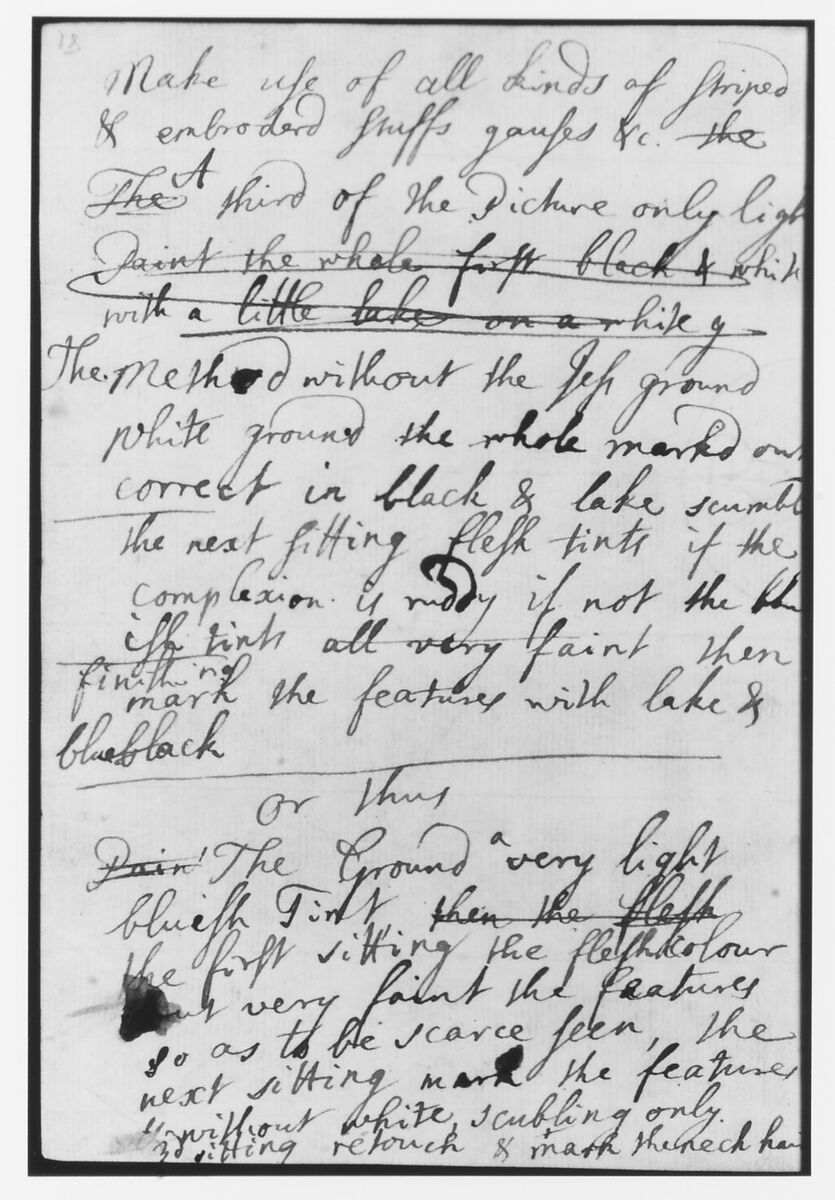 18
Make use of all kinds of striped
& embroderd stuffs gauses &c. the
The A third of the Picture only ligh
Paint the whole first black & white
with a little lake on a white g
The Method without the
ground
white ground the whole markd out
correct in black & lake scumbl
the next sitting flesh tints if the
complexion is ruddy if not the blu
ish tints all very faint then
finishing
mark the features with lake &
blueblack
or thus
Pain The Ground a very light
bluish Tint then the flesh
the first sitting the flesh colour
but very faint the features
so as to be scarce seen, the
next sitting mark the features
without white, scubling only.
3d sitting retouch & mark the neck hair